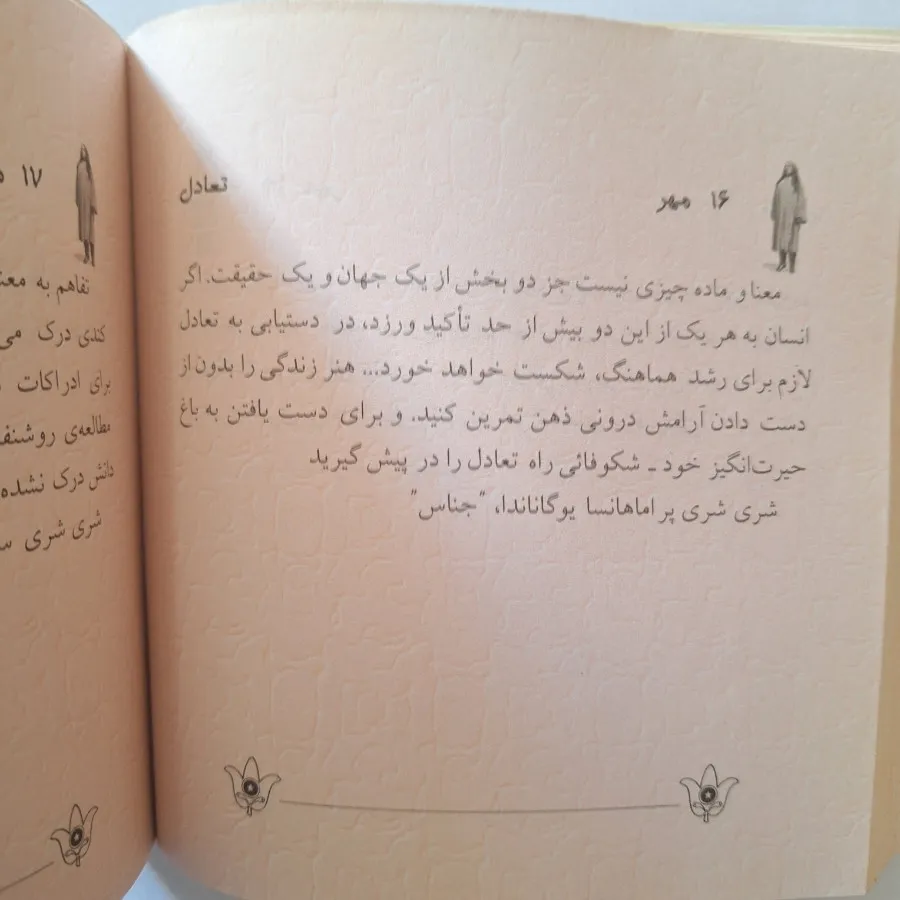 ۱۶ مهر
تعادل
معنا و ماده چیزی نیست جز دو بخش از یک جهان و یک حقیقت. اگر
انسان به هر یک از این دو بیش از حد تأکید ورزد، در دستیابی به تعادل
لازم برای رشد هماهنگ، شکست خواهد خورد... هنر زندگی را بدون از
دست دادن آرامش درونی ذهن تمرین کنید. و برای دست یافتن به باغ
حیرت‌انگیز خود ـ شکوفائی راه تعادل را در پیش گیرید
شری شری پر اماهانسا یوگاناندا، "جناس"
۱۷
تفاهم به
کندی درک
برای ادراکات
مطالعه‌ی
دانش درک نشده
شری شری